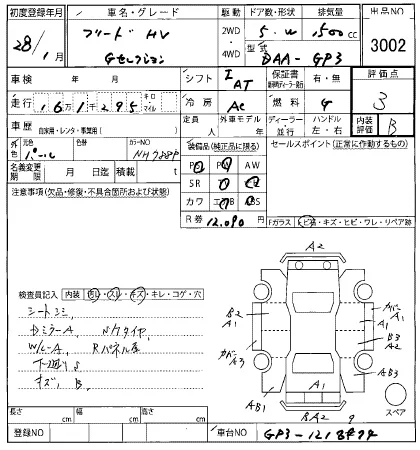 初度登録年月 車名・グレード 駆動 ドア数・形状 排気量 出品NO
28年 1月 フリード HV 2WD 4WD 5.W 1500cc 3002
Gセレクション 型式 DAA-GP3
車検 年 月 シフト I AT 保証書 有・無 評価点
走行 161295 キロ マイル 冷房 AC 燃料 G 3
車歴 自家用・レンタ・事業用( ) 定員 人 外車モデル 年 ディーラー 並行 ハンドル 左・右 内装評価 B
外色 元色 パール 色替 カラーNO NH788P 装備品(純正品に限る) セールスポイント(正常に作動するもの)
PS PW AW
名義変更期限 月 日迄 積載 t SR
注意事項(欠品・修復・不具合箇所および状態) カワ エアB
R券 12,090 Fガラス トビ石・キズ・ヒビ・ワレ・リペア跡
A2
検査員記入 内装 汚レ・スレ・キズ・キレ・コゲ・穴
シートシミ
DミラーA
W/L-A Rパネル
下廻りS
キズ、B
B2 A1
カバーA3
カバーA1
A1
B3 A2
AB3
A1
AB1
BA2
スペア
長さ cm 幅 cm 高さ cm
登録NO 車台NO GP3-1218974